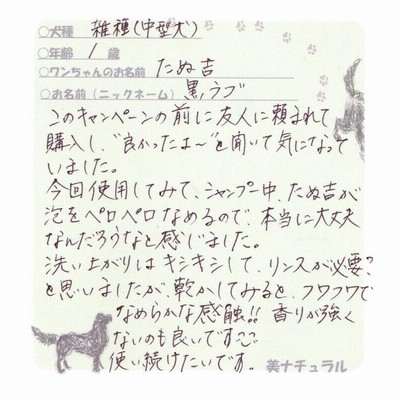 ○犬種 雑種(中型犬)
○年齢 1 歳
○ワンちゃんのお名前 たぬ吉
○お名前(ニックネーム) 黒ラブ
このキャンペーンの前に友人に頼まれて
購入し、"良かったよ〜"を聞いて気になって
いました。
今回使用してみて、シャンプー中、たぬ吉が
泡をペロペロなめるので、本当に大丈夫
なんだろうなと感じました。
洗い上がりはキシキシして、リンスが必要?
と思いましたが、乾かしてみると、フワフワで
なめらかな感触!! 香りが強く
ないのも良いです
使い続けたいです。
美ナチュラル